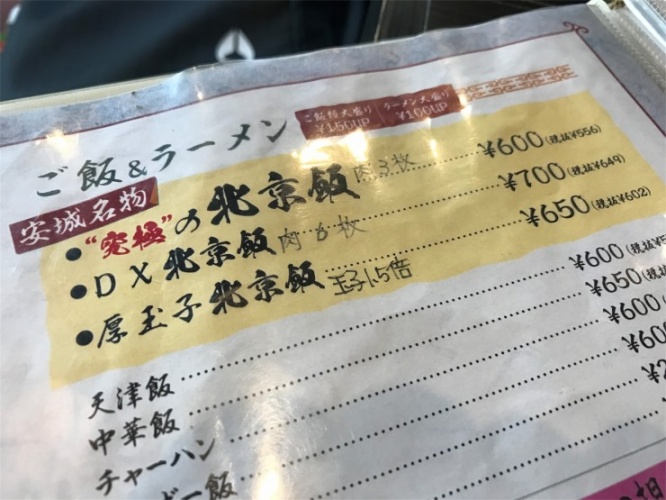 ご飯&ラーメン
ご飯類大盛り ¥150UP
ラーメン大盛り ¥100UP
安城名物
●"究極"の北京飯 肉3枚 ¥600(税抜¥556)
●DX北京飯 肉6枚 ¥700(税抜¥649)
●厚玉子北京飯 玉子1.5倍 ¥650(税抜¥602)
天津飯 ¥600(税抜¥5
中華飯 ¥650(税抜
チャーハン ¥600
飯 ¥60